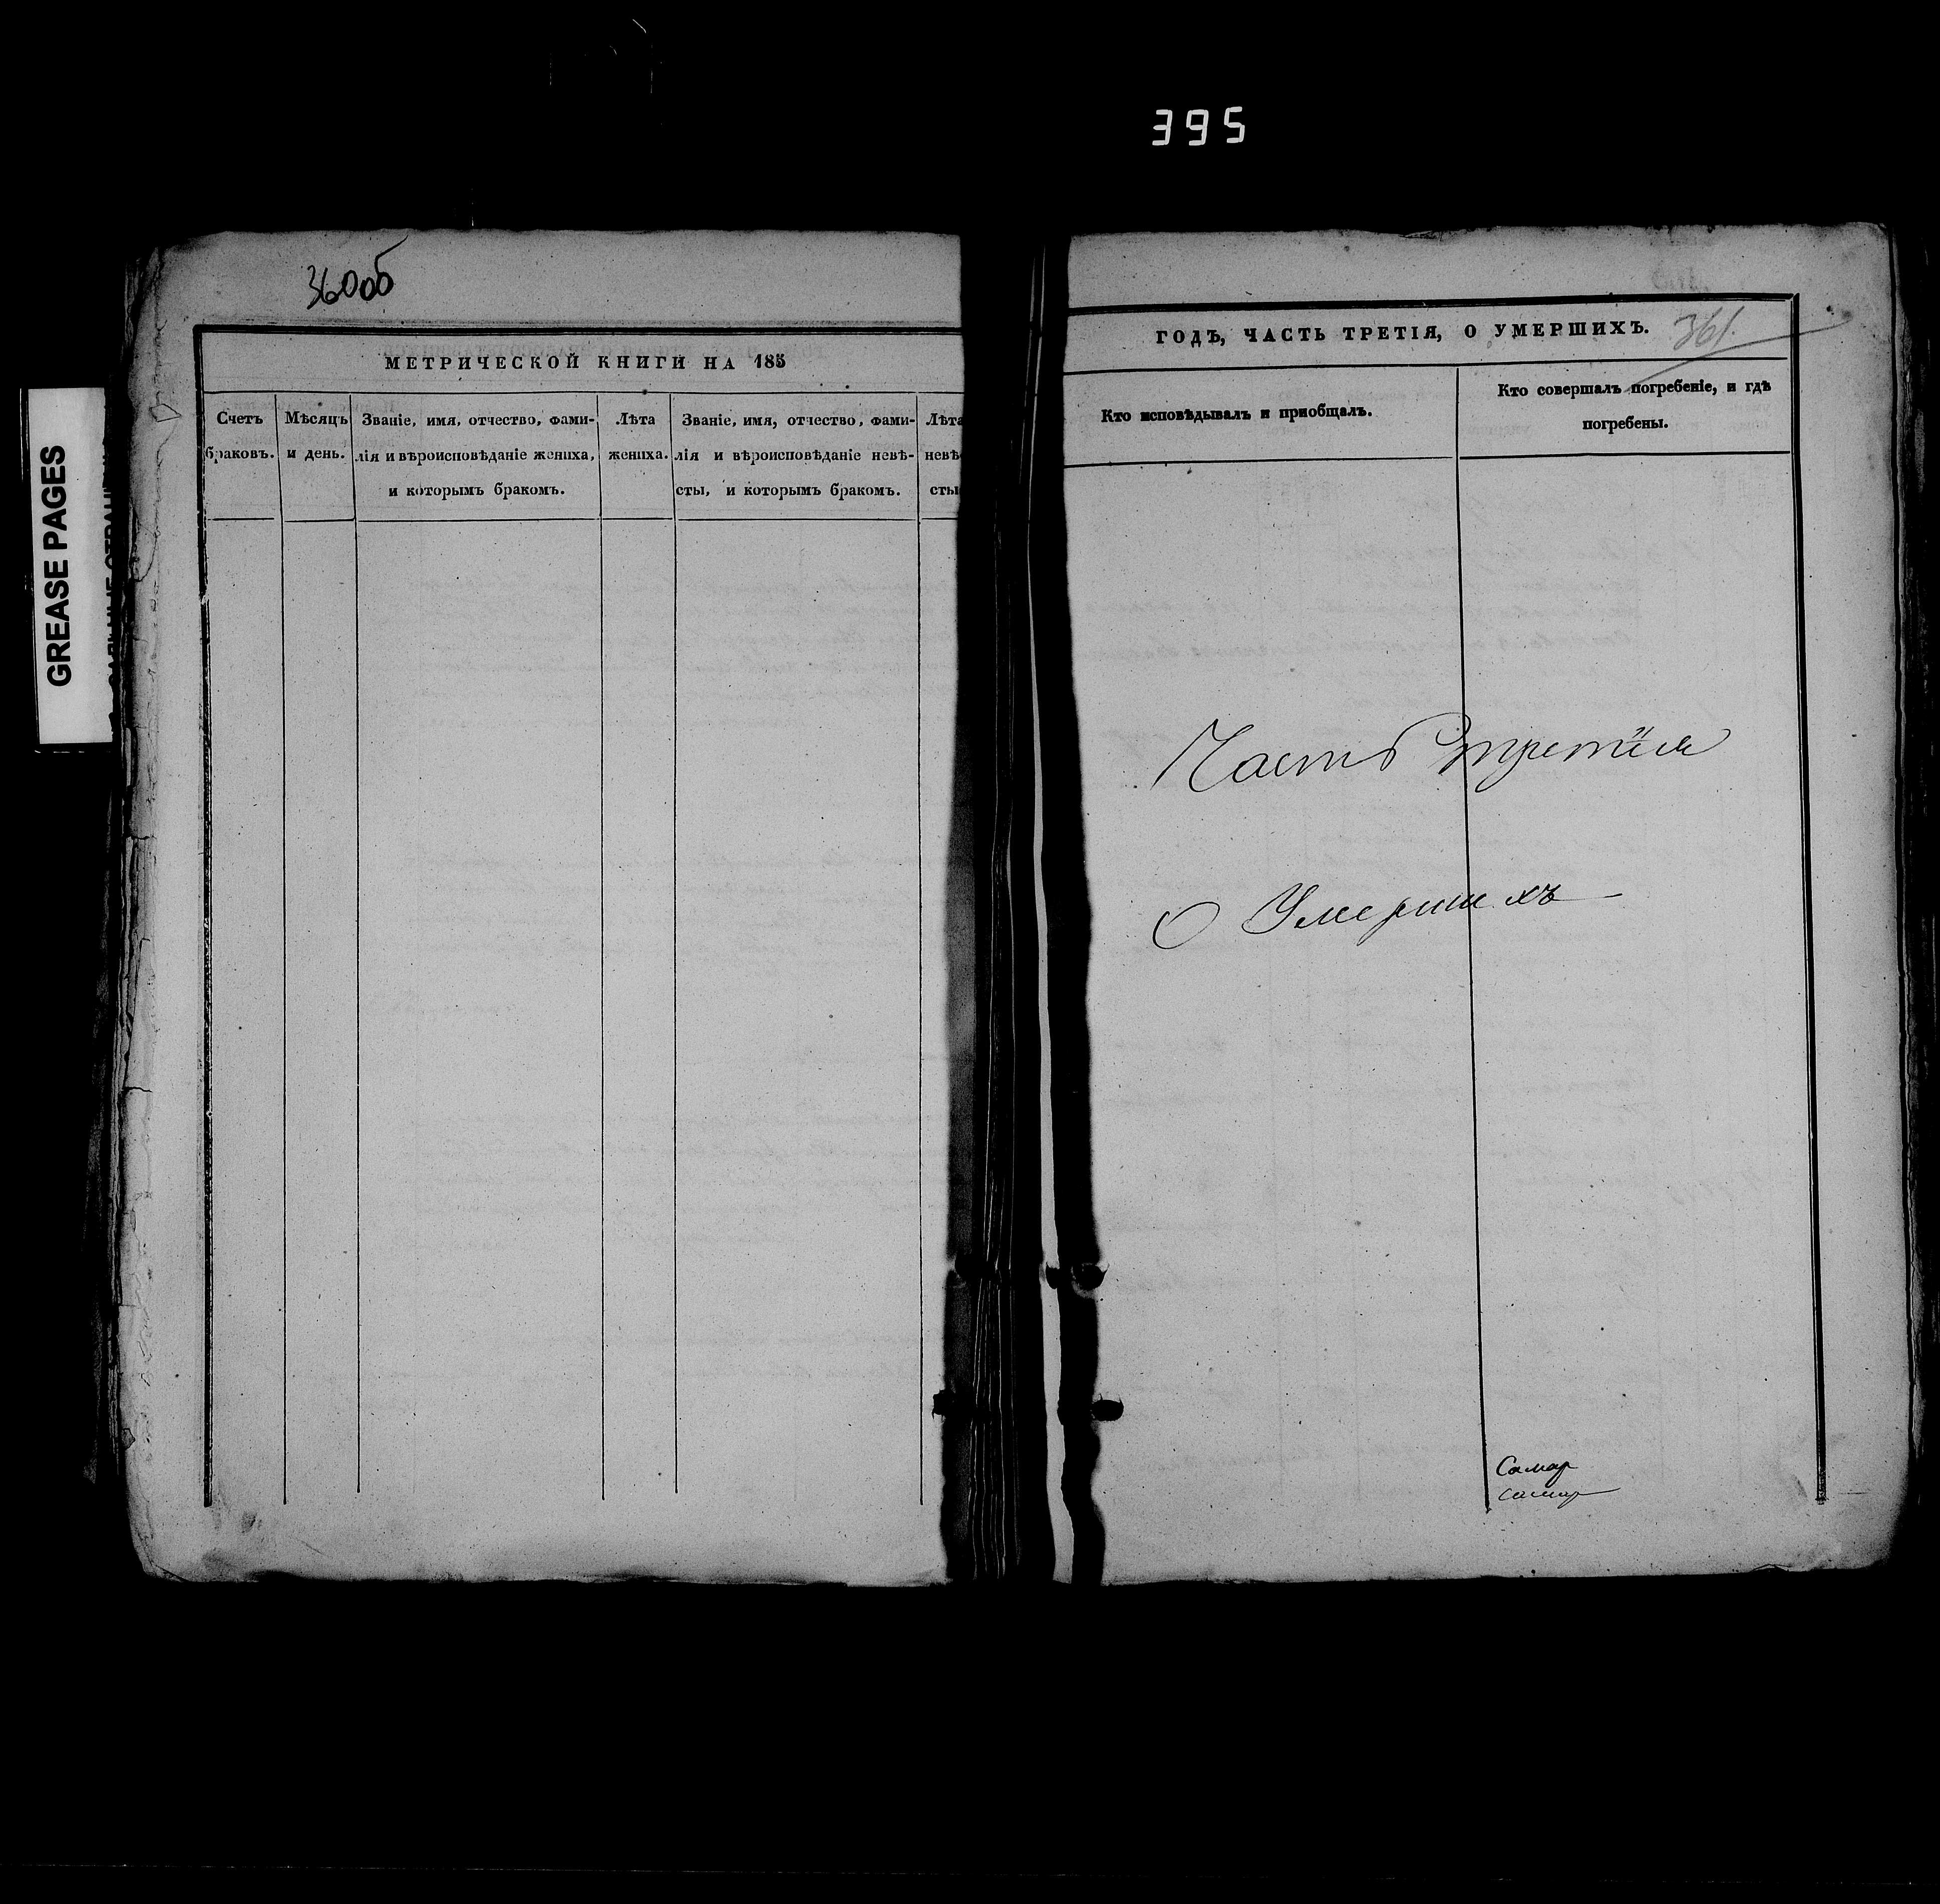 395
360об
МЕТРИЧЕСКОЙ КНИГИ НА 185
Счетъ браковъ.
Мѣсяцъ и день.
Званіе, имя, отчество, фами-
лія и вѣроисповѣданіе жениха,
и которымъ бракомъ.
Лѣта
жениха.
Званіе, имя, отчество, фами-
лія и вѣроисповѣданіе невѣ-
сты, и которымъ бракомъ.
Лѣта
невѣ
сты
GREASE PAGES
ГОДЪ, ЧАСТЬ ТРЕТІЯ, О УМЕРШИХЪ.
361.
Кто исповѣдывалъ и приобщалъ.
Кто совершалъ погребеніе, и гдѣ
погребены.
Часть третія
О Умершихъ
Самар
самар